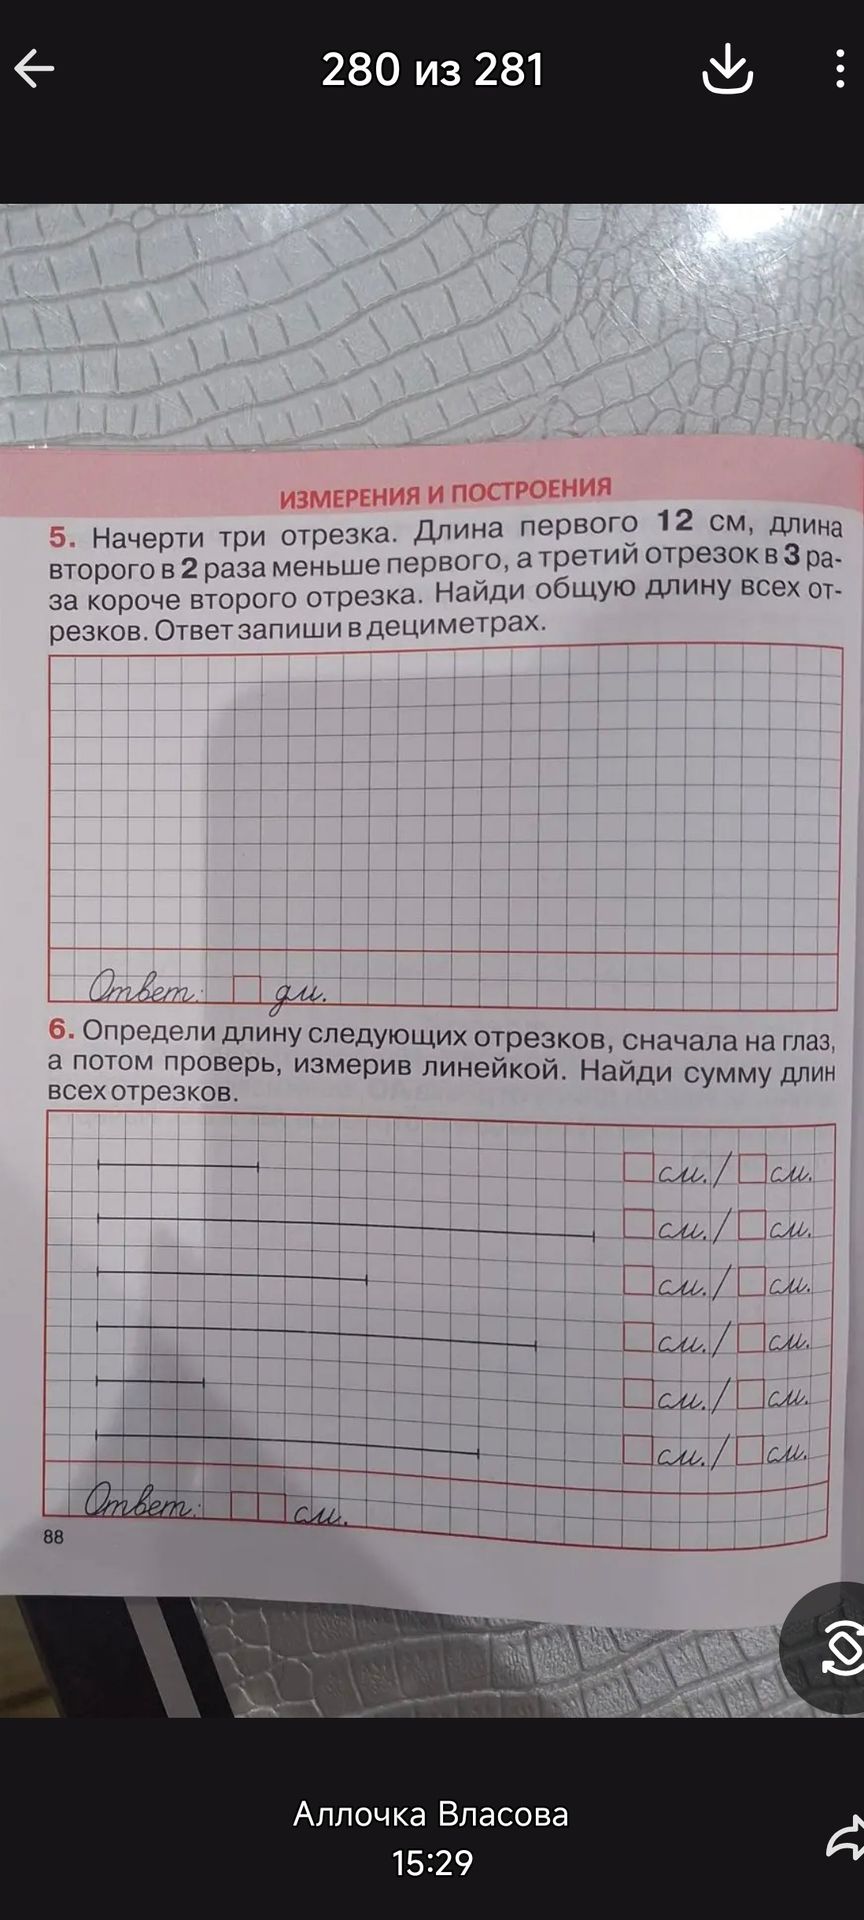 280 из 281
ИЗМЕРЕНИЯ И ПОСТРОЕНИЯ
5. Начерти три отрезка. Длина первого 12 см, длина
второго в 2 раза меньше первого, а третий отрезок в 3 ра-
за короче второго отрезка. Найди общую длину всех от-
резков. Ответ запиши в дециметрах.
Ответ: дм.
6. Определи длину следующих отрезков, сначала на глаз,
а потом проверь, измерив линейкой. Найди сумму длин
всех отрезков.
см. / см.
см. / см.
см. / см.
см. / см.
см. / см.
см. / см.
Ответ: см.
88
Аллочка Власова
15:29